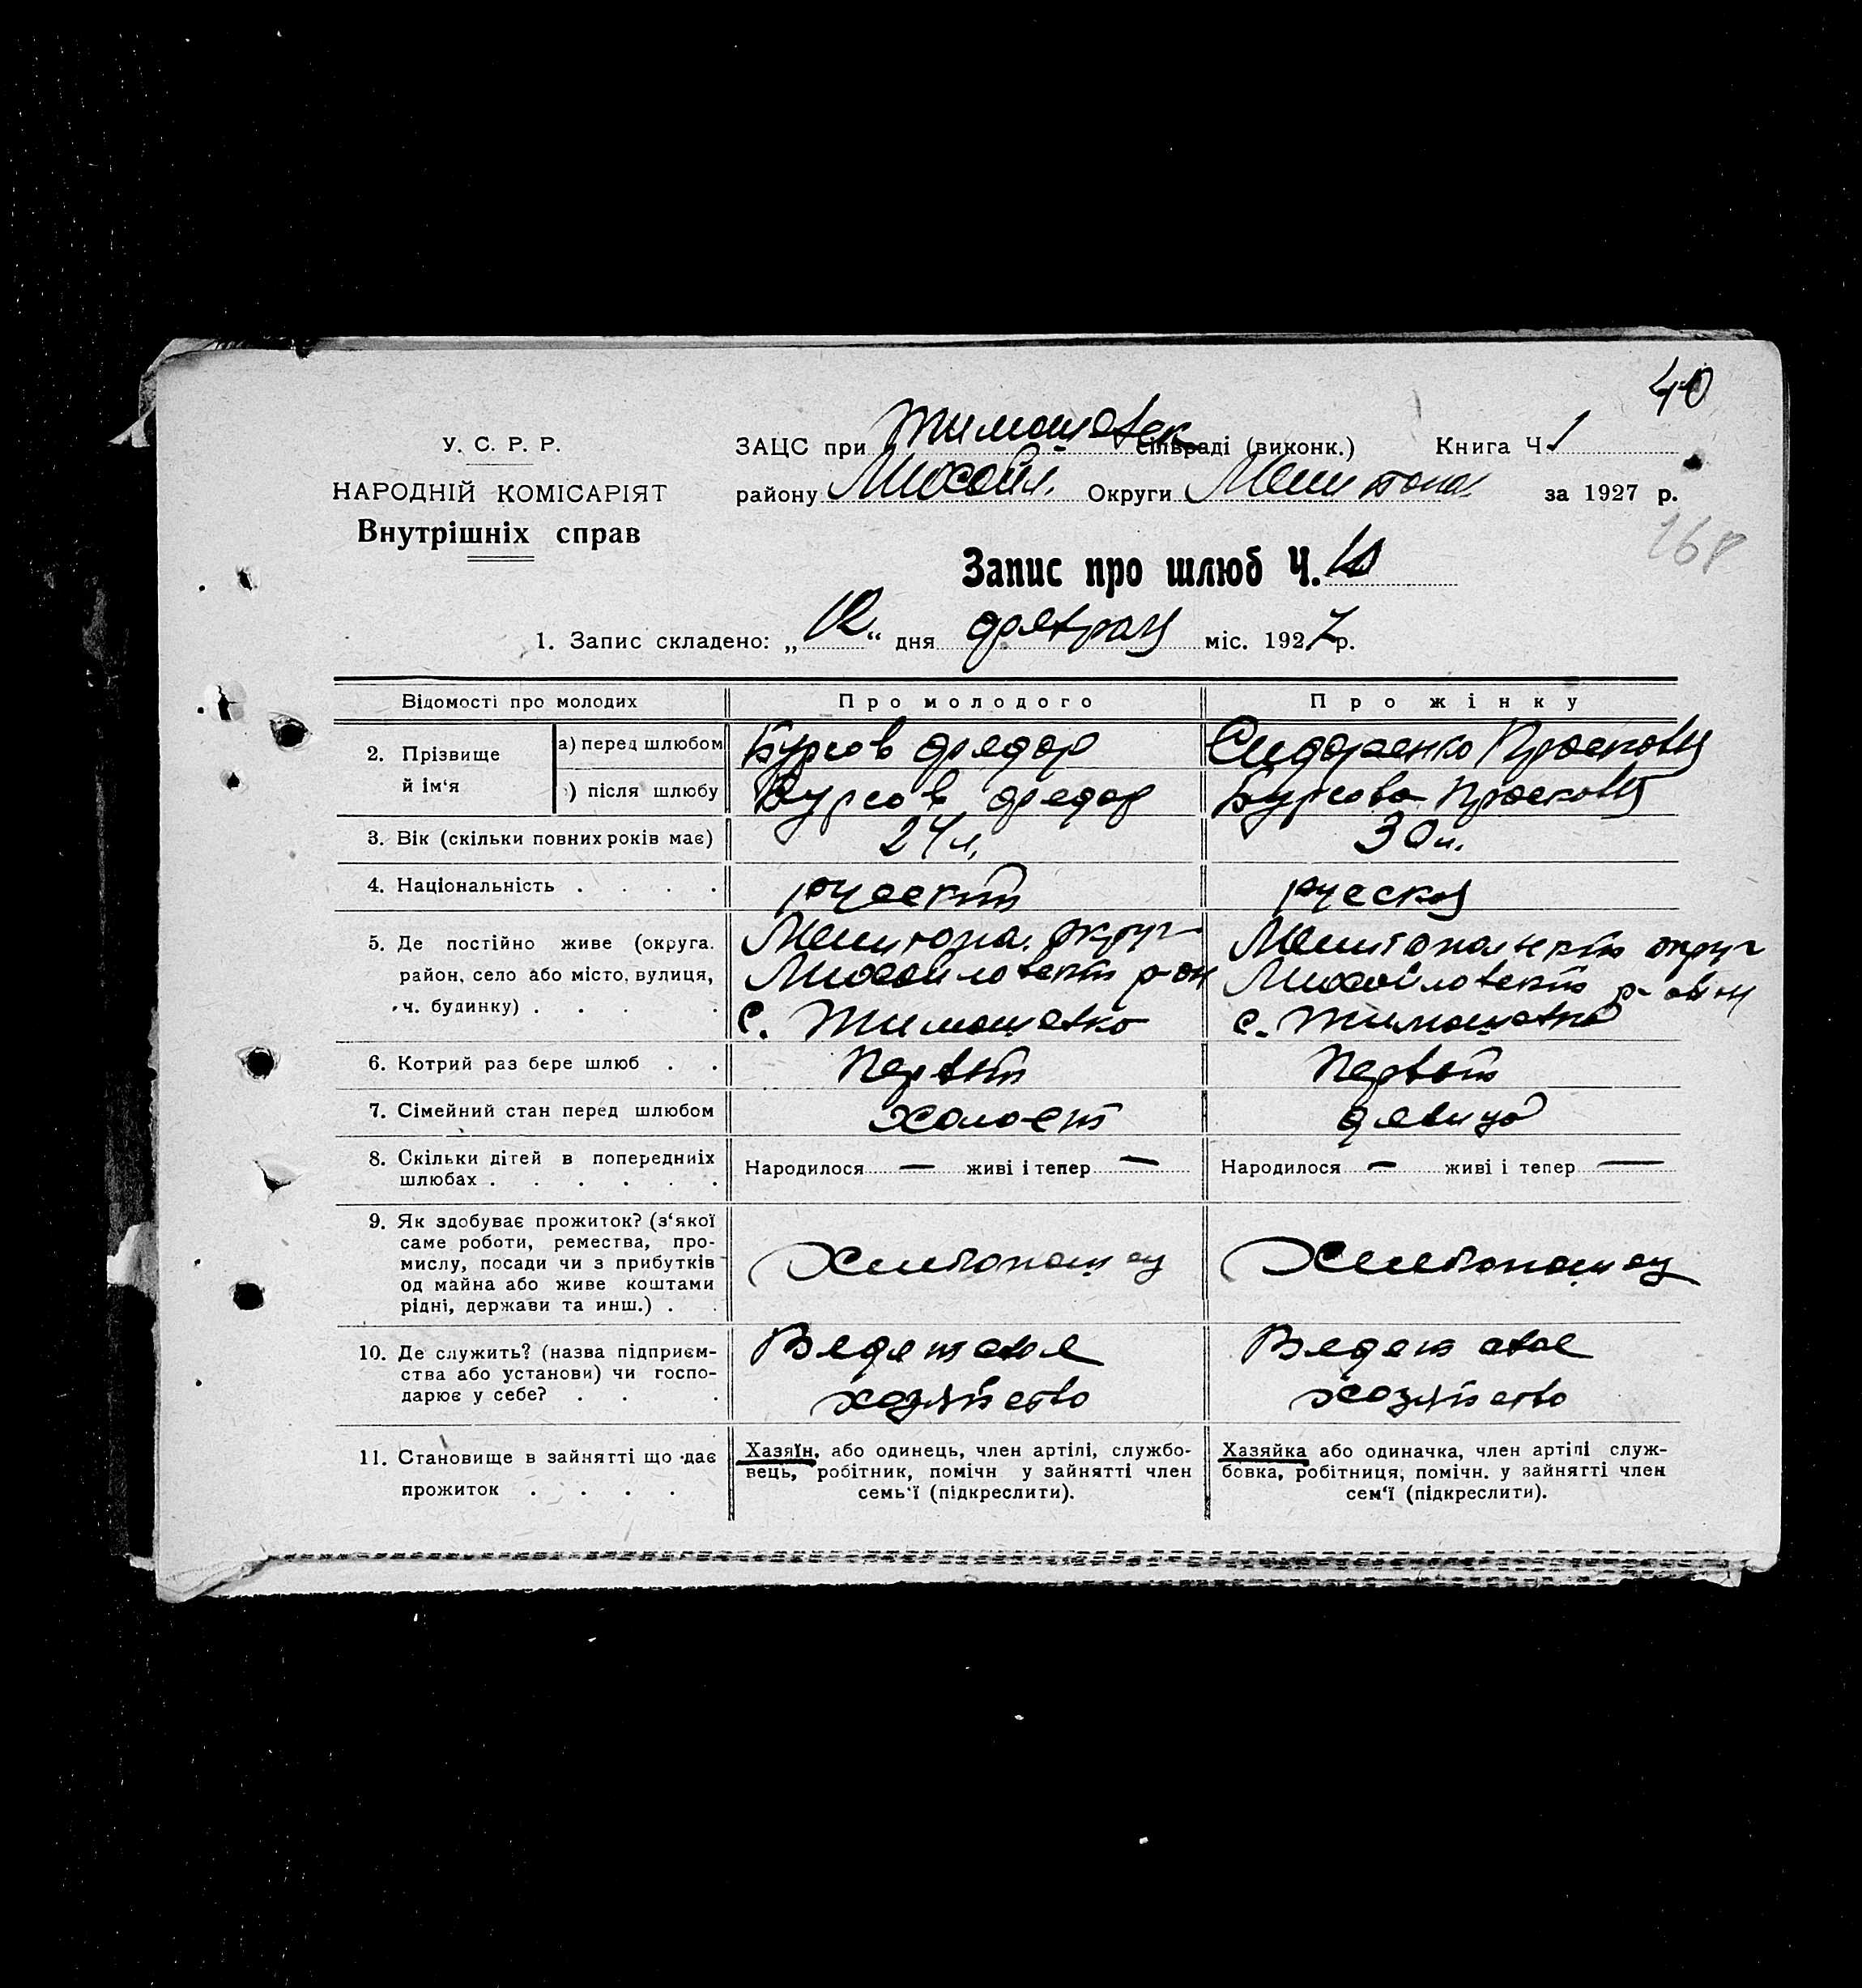 40
У. С. Р. Р.
НАРОДНІЙ КОМІСАРІЯТ
Внутрішніх справ
ЗАЦС при Тимошевск сільраді (виконк.) Книга Ч 1
району Михайл. Округи Мелитопол за 1927 р.
168
Запис про шлюб Ч.
1. Запис складено: „ “ дня февраля міс. 1927 р.
Відомості про молодих Про молодого Про жінку
2. Прізвище й ім‘я
а) перед шлюбом Бурсов Федор Сидоренко Просковя
) після шлюбу Бурсов Федор Бурсова Просковя
3. Вік (скільки повних років має) 24 л. 30 л.
4. Національність . . . . руский руская
5. Де постійно живе (округа. Мелитопа. округ Мелитопальский округ
район, село або місто, вулиця, Михайловский р-он Михайловский р-он
ч. будинку) . . . . с. Тимошевко с. Тимошевка
6. Котрий раз бере шлюб . . Первый Первый
7. Сімейний стан перед шлюбом холост девица
8. Скільки дітей в попередниіх Народилося — живі і тепер — Народилося — живі і тепер —
шлюбах . . . . . .
9. Як здобуває прожиток? (з‘якої
саме роботи, ремества, про-
мислу, посади чи з прибутків Хлебопашец Хлебопашец
од майна або живе коштами
рідні, держави та инш.) . .
10. Де служить? (назва підприєм- Ведет свое Ведет свое
ства або установи) чи госпо-
дарює у себе? . . . хозяйство хозяйство
11. Становище в зайнятті що дає
прожиток . . . .
Хазяїн, або одинець, член артілі, службо-
вець, робітник, помічн у зайнятті член
семь‘ї (підкреслити).
Хазяйка або одиначка, член артілі служ-
бовка, робітниця, помічн. у зайнятті член
сем‘ї (підкреслити).